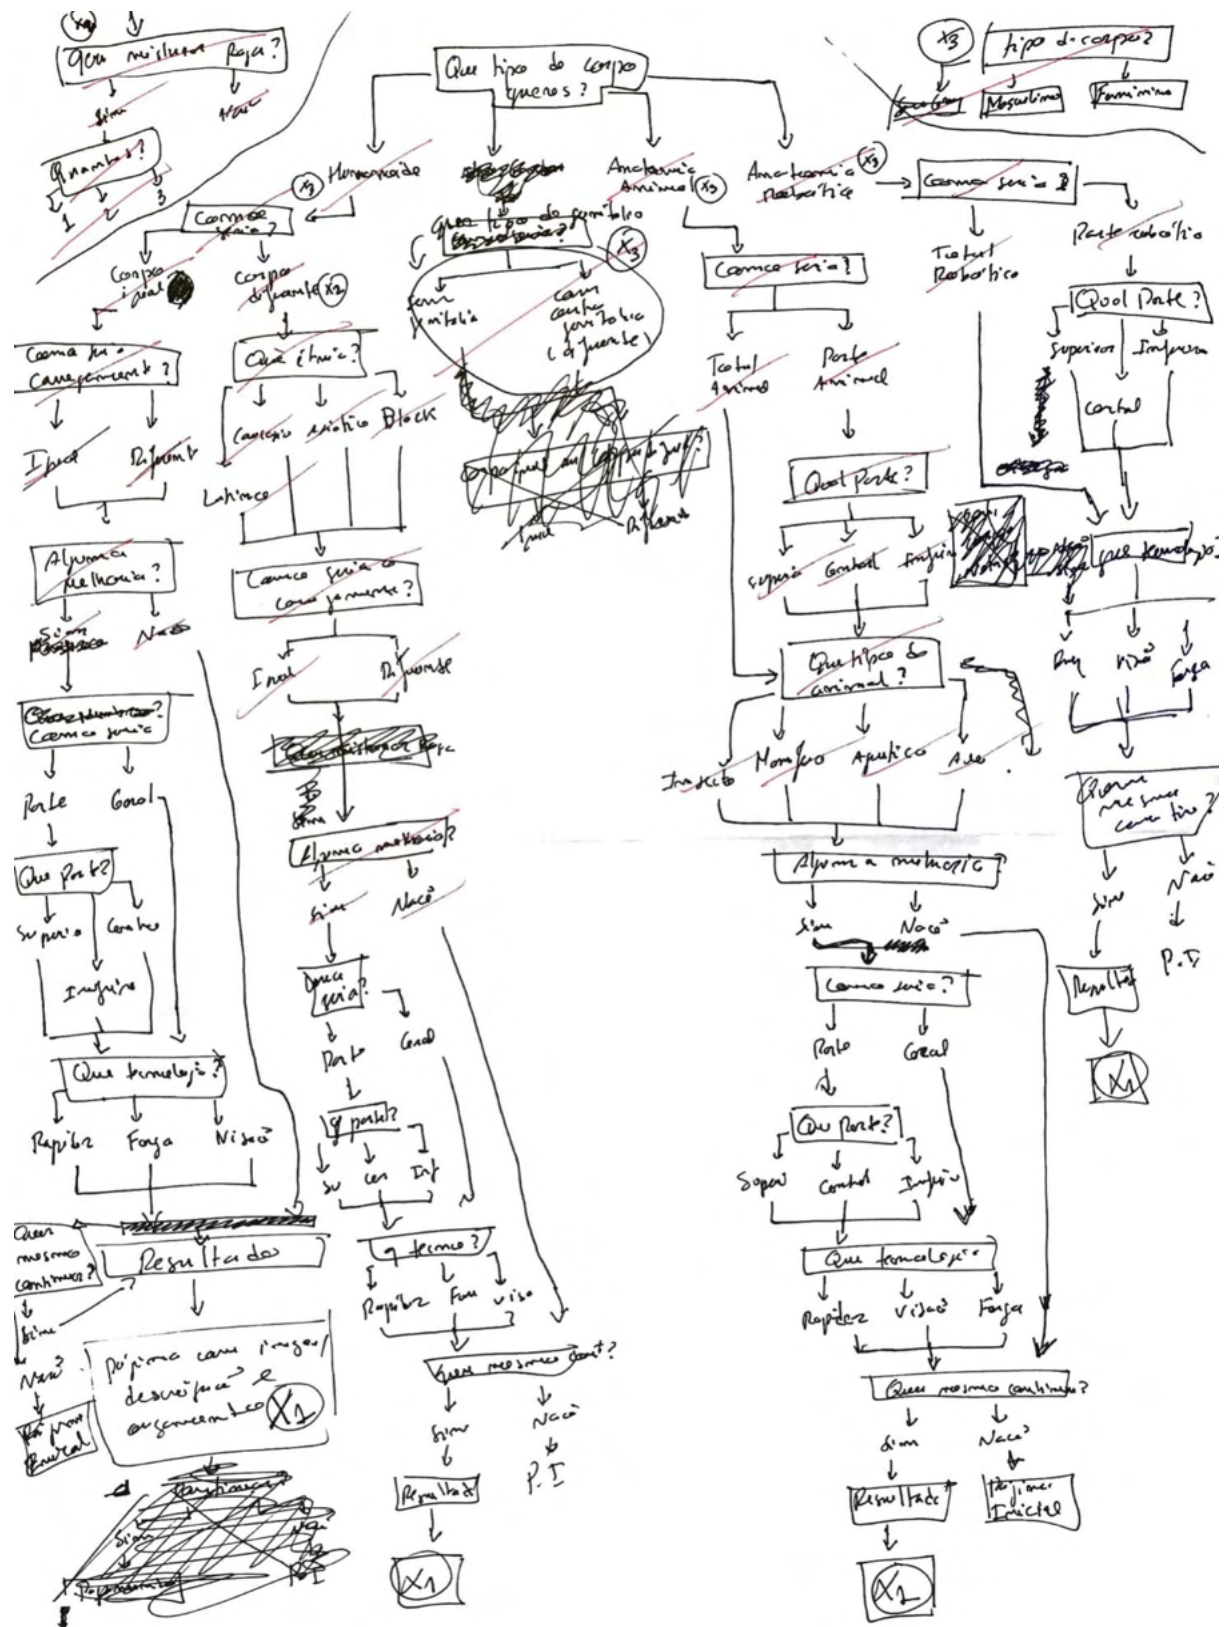 X2
Quer misturar Raça?
Sim
Não
Quantas?
1
2
3
Que tipo de corpo
queres?
X3
tipo de corpo?
Masculino
Feminino
Humanoide
X3
Como
seria?
Corpo
igual
Corpo
diferente X2
Como seria o
carregamento?
Igual
Diferente
Alguma
melhoria?
Sim
Não
Como seria
Parte
Geral
Que parte?
Superio
Centro
Inferior
Que tecnologia?
Rapidez
Força
Visão
Quer
mesmo
continuar?
Sim
Não
Página
Inicial
Resultado
Página com imagem,
descrição e
orçamento
X1
Que étnia?
Caucasio
Asiatico
Black
Latino
Como seria o
carregamento?
Igual
Diferente
Alguma melhoria?
Sim
Não
Como
seria?
Parte
Geral
q parte?
Su
Cen
Inf
q tecno?
Rapidez
For
Viso
Quer mesmo cont?
Sim
Não
P.I
Resultado
X1
Que tipo de genitalia
X3
Sem
genitalia
Com
outra
genitalia
(diferente)
Anatomia
Animal X3
Como seria?
Total
Animal
Parte
Animal
Qual Parte?
Superio
Central
Inferio
Que tipo de
animal?
Insecto
Mamifero
Aquatico
Aves
Alguma melhoria?
Sim
Não
Como seria?
Parte
Geral
Que Parte?
Superi
Central
Inferio
Que tecnologia
Rapidez
Visão
Força
Quer mesmo continuar?
Sim
Não
Resultado
Página
Inicial
X1
Anatomia X3
Robótica
Como seria?
Total
Robótico
Parte robótica
Qual Parte?
Superior
Inferior
Central
que tecnologia?
Rap
Visão
Força
Quer
mesmo
continuar?
Sim
Não
P.I
Resultado
X1